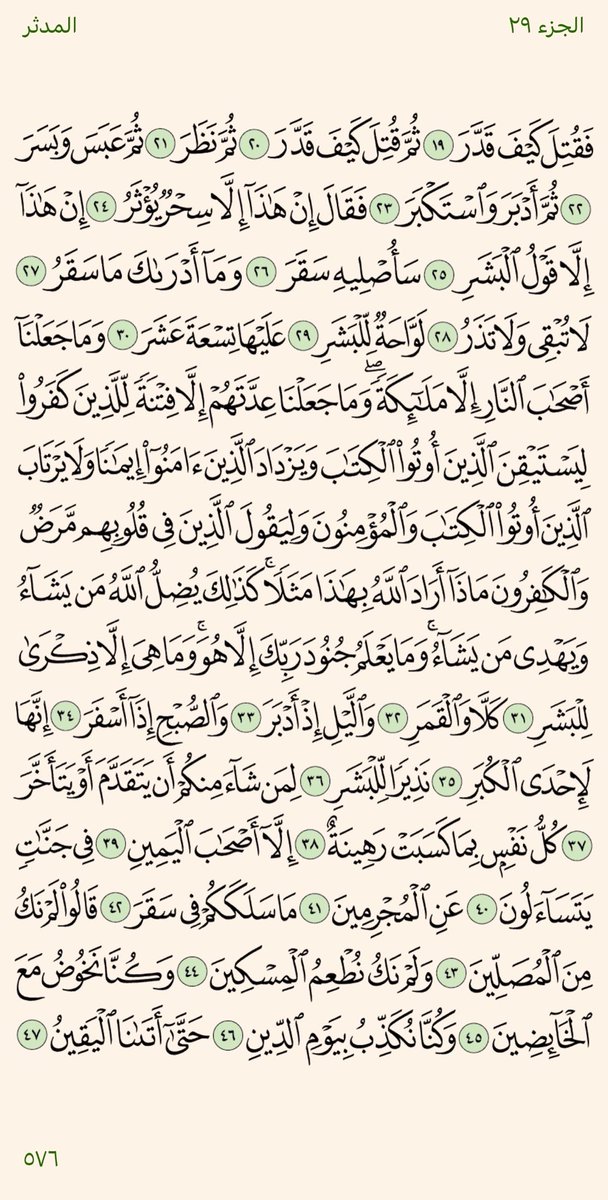 الجزء ٢٩
المدثر
فَقُتِلَ كَيْفَ قَدَّرَ ١٩ ثُمَّ قُتِلَ كَيْفَ قَدَّرَ ٢٠ ثُمَّ نَظَرَ ٢١ ثُمَّ عَبَسَ وَبَسَرَ
٢٢ ثُمَّ أَدْبَرَ وَٱسْتَكْبَرَ ٢٣ فَقَالَ إِنْ هَٰذَآ إِلَّا سِحْرٌ يُؤْثَرُ ٢٤ إِنْ هَٰذَآ
إِلَّا قَوْلُ ٱلْبَشَرِ ٢٥ سَأُصْلِيهِ سَقَرَ ٢٦ وَمَآ أَدْرَىٰكَ مَا سَقَرُ ٢٧
لَا تُبْقِى وَلَا تَذَرُ ٢٨ لَوَّاحَةٌ لِّلْبَشَرِ ٢٩ عَلَيْهَا تِسْعَةَ عَشَرَ ٣٠ وَمَا جَعَلْنَآ
أَصْحَٰبَ ٱلنَّارِ إِلَّا مَلَٰٓئِكَةً ۙ وَمَا جَعَلْنَا عِدَّتَهُمْ إِلَّا فِتْنَةً لِّلَّذِينَ كَفَرُوا۟
لِيَسْتَيْقِنَ ٱلَّذِينَ أُوتُوا۟ ٱلْكِتَٰبَ وَيَزْدَادَ ٱلَّذِينَ ءَامَنُوٓا۟ إِيمَٰنًا وَلَا يَرْتَابَ
ٱلَّذِينَ أُوتُوا۟ ٱلْكِتَٰبَ وَٱلْمُؤْمِنُونَ وَلِيَقُولَ ٱلَّذِينَ فِى قُلُوبِهِم مَّرَضٌ
وَٱلْكَٰفِرُونَ مَاذَآ أَرَادَ ٱللَّهُ بِهَٰذَا مَثَلًا ۚ كَذَٰلِكَ يُضِلُّ ٱللَّهُ مَن يَشَآءُ
وَيَهْدِى مَن يَشَآءُ ۚ وَمَا يَعْلَمُ جُنُودَ رَبِّكَ إِلَّا هُوَ ۚ وَمَا هِىَ إِلَّا ذِكْرَىٰ
لِلْبَشَرِ ٣١ كَلَّا وَٱلْقَمَرِ ٣٢ وَٱلَّيْلِ إِذْ أَدْبَرَ ٣٣ وَٱلصُّبْحِ إِذَآ أَسْفَرَ ٣٤ إِنَّهَا
لَإِحْدَى ٱلْكُبَرِ ٣٥ نَذِيرًا لِّلْبَشَرِ ٣٦ لِمَن شَآءَ مِنكُمْ أَن يَتَقَدَّمَ أَوْ يَتَأَخَّرَ
٣٧ كُلُّ نَفْسٍۭ بِمَا كَسَبَتْ رَهِينَةٌ ٣٨ إِلَّآ أَصْحَٰبَ ٱلْيَمِينِ ٣٩ فِى جَنَّٰتٍ
يَتَسَآءَلُونَ ٤٠ عَنِ ٱلْمُجْرِمِينَ ٤١ مَا سَلَكَكُمْ فِى سَقَرَ ٤٢ قَالُوا۟ لَمْ نَكُ
مِنَ ٱلْمُصَلِّينَ ٤٣ وَلَمْ نَكُ نُطْعِمُ ٱلْمِسْكِينَ ٤٤ وَكُنَّا نَخُوضُ مَعَ
ٱلْخَآئِضِينَ ٤٥ وَكُنَّا نُكَذِّبُ بِيَوْمِ ٱلدِّينِ ٤٦ حَتَّىٰٓ أَتَىٰنَا ٱلْيَقِينُ ٤٧
٥٧٦